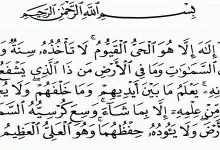 بِسْمِ اللَّهِ الرَّحْمَٰنِ الرَّحِيمِ
إِلَٰهَ إِلَّا هُوَ الْحَيُّ الْقَيُّومُ ۚ لَا تَأْخُذُهُ سِنَةٌ وَ
السَّمَٰوَٰتِ وَمَا فِي الْأَرْضِ مَن ذَا الَّذِي يَشْفَعُ
نِهِ ۚ يَعْلَمُ مَا بَيْنَ أَيْدِيهِمْ وَمَا خَلْفَهُمْ وَلَا يُ
مِنْ عِلْمِهِ ۚ إِلَّا بِمَا شَاءَ وَسِعَ كُرْسِيُّهُ السَّمَ
أَرْضَ وَلَا يَئُودُهُ حِفْظُهُمَا وَهُوَ الْعَلِيُّ الْعَظِيمُ